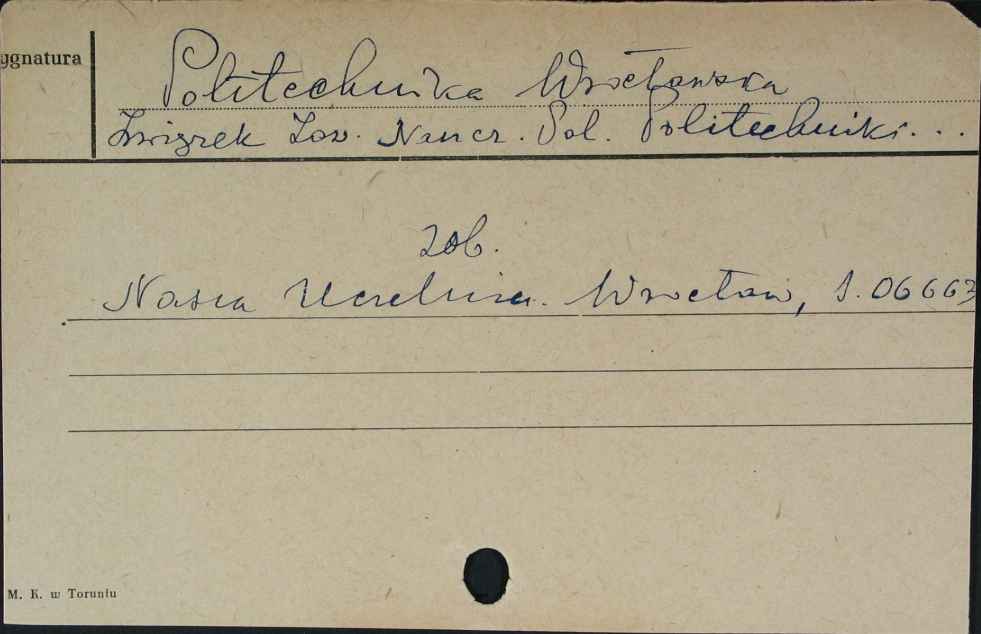 ygnatura
Politechnika Wrocławska
Związek Zaw. Naucz. Pol. Politechniki...
Zob.
Nasza Uczelnia. Wrocław, S. 06663
M. K. w Toruniu